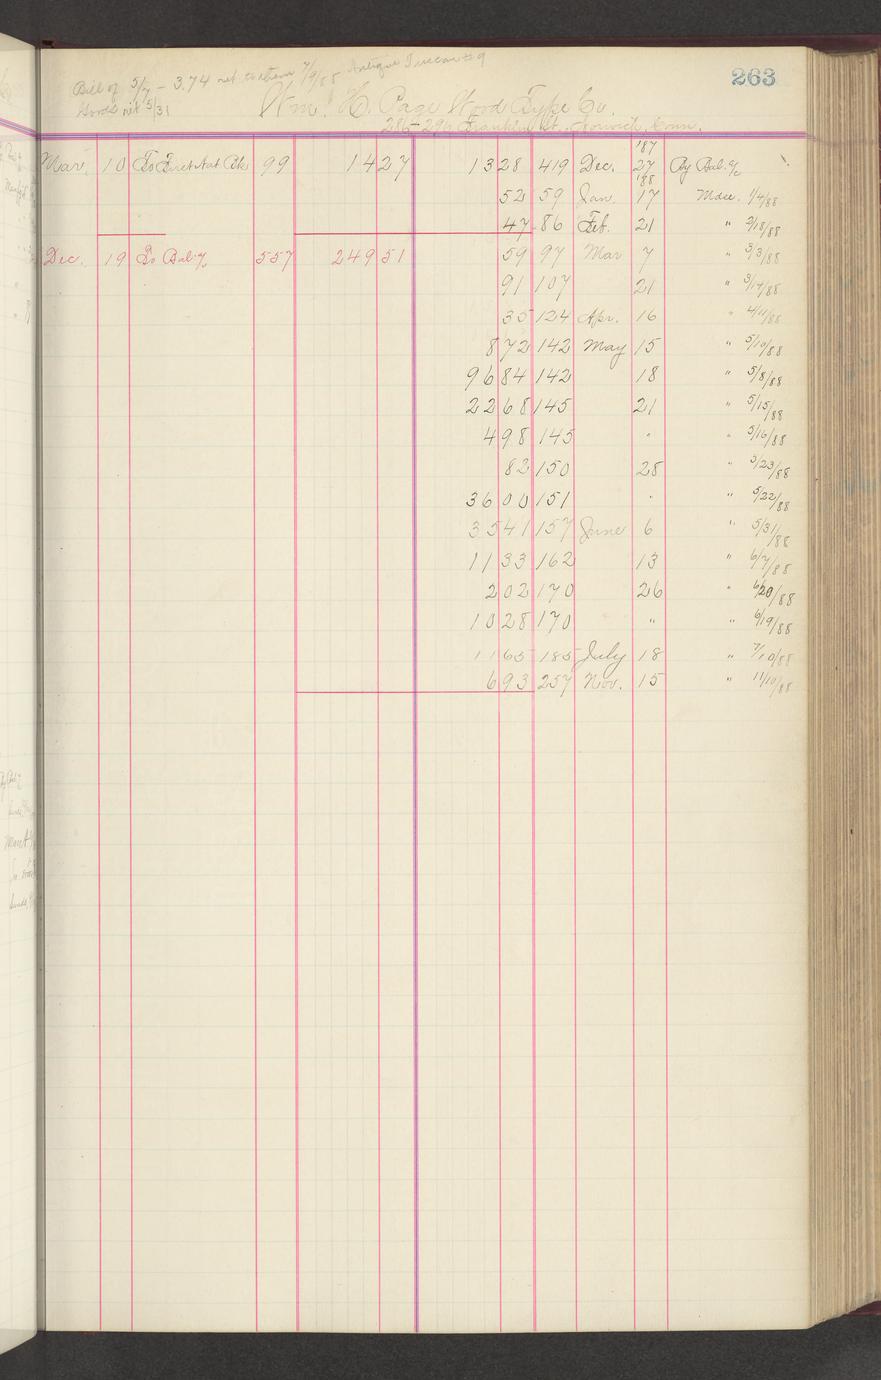 263
Bill of 5/7 - 3.74 net to them 7/9/88 Antique
Goods net 5/31
Wm. H. Page Wood Type Co.
286-296 Franklin St., Norwich, Conn.
Mar. 10 To First Nat Bk 99 14 27 13 28 419 Dec. '87 27 By Bal. a/c
52 59 Jan. '88 17 Mdse. 1/4/88
47 86 Feb. 21 " 2/18/88
Dec. 19 To Bal. a/c 557 249 51 59 97 Mar 7 " 3/3/88
91 107 21 " 3/14/88
35 124 Apr. 16 " 4/11/88
8 72 142 May 15 " 5/10/88
96 84 142 18 " 5/8/88
22 68 145 21 " 5/15/88
4 98 145 " " 5/16/88
82 150 28 " 5/23/88
36 00 151 " " 5/22/88
35 41 157 June 6 " 5/31/88
11 33 162 13 " 6/7/88
2 02 170 26 " 6/20/88
10 28 170 " " 6/19/88
11 65 185 July 18 " 7/10/88
6 93 257 Nov. 15 " 11/10/88